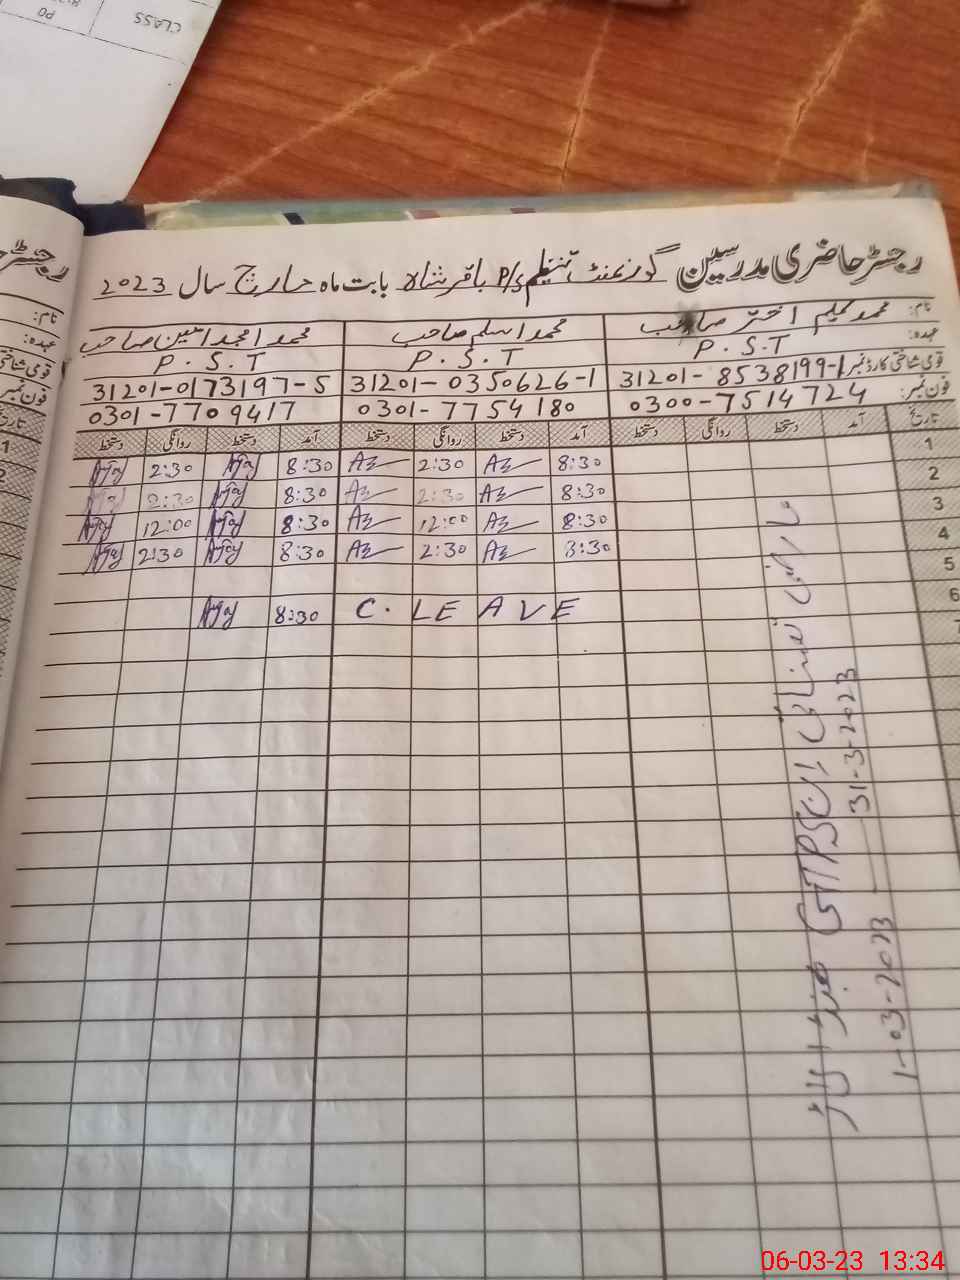 CLASS
PO
رجسٹر حاضری مدرسین گورنمنٹ تنظیم P/S باقر شاہ بابت ماہ مارچ سال 2023
نام: محمد کلیم اختر صاحب محمد اسلم صاحب محمد امجد امین صاحب
عہدہ: P.S.T P.S.T P.S.T
قومی شناختی کارڈ نمبر 31201-8538199-1 31201-0350626-1 31201-0173197-5
فون نمبر: 0300-7514724 0301-7754180 0301-7709417
تاریخ آمد دستخط روانگی دستخط آمد دستخط روانگی دستخط آمد دستخط روانگی دستخط
1 8:30 2:30 8:30 2:30
2 8:30 2:30 8:30 2:30
3 8:30 12:00 8:30 12:00
4 8:30 2:30 8:30 2:30
5
6 C. LEAVE 8:30
7
عارضی تعیناتی GTPS
1-03-2023 — 31-3-2023
رجسٹر
نام:
عہدہ:
قومی شناختی
فون نمبر:
تاریخ
1
2
06-03-23 13:34